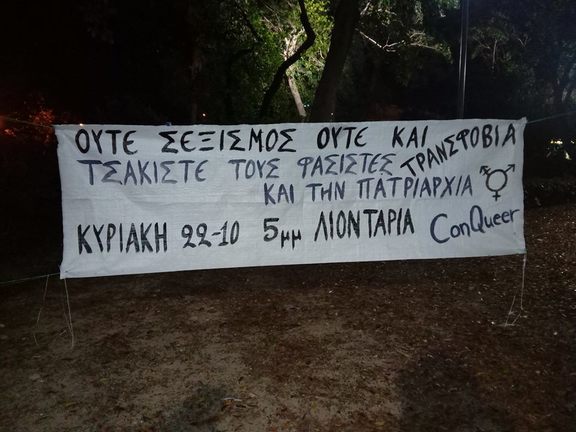 ΟΥΤΕ ΣΕΞΙΣΜΟΣ ΟΥΤΕ ΚΑΙ ΤΡΑΝΣΦΟΒΙΑ
ΤΣΑΚΙΣΤΕ ΤΟΥΣ ΦΑΣΙΣΤΕΣ
ΚΑΙ ΤΗΝ ΠΑΤΡΙΑΡΧΙΑ
ΚΥΡΙΑΚΗ 22-10 5μμ ΛΙΟΝΤΑΡΙΑ
ConQueer